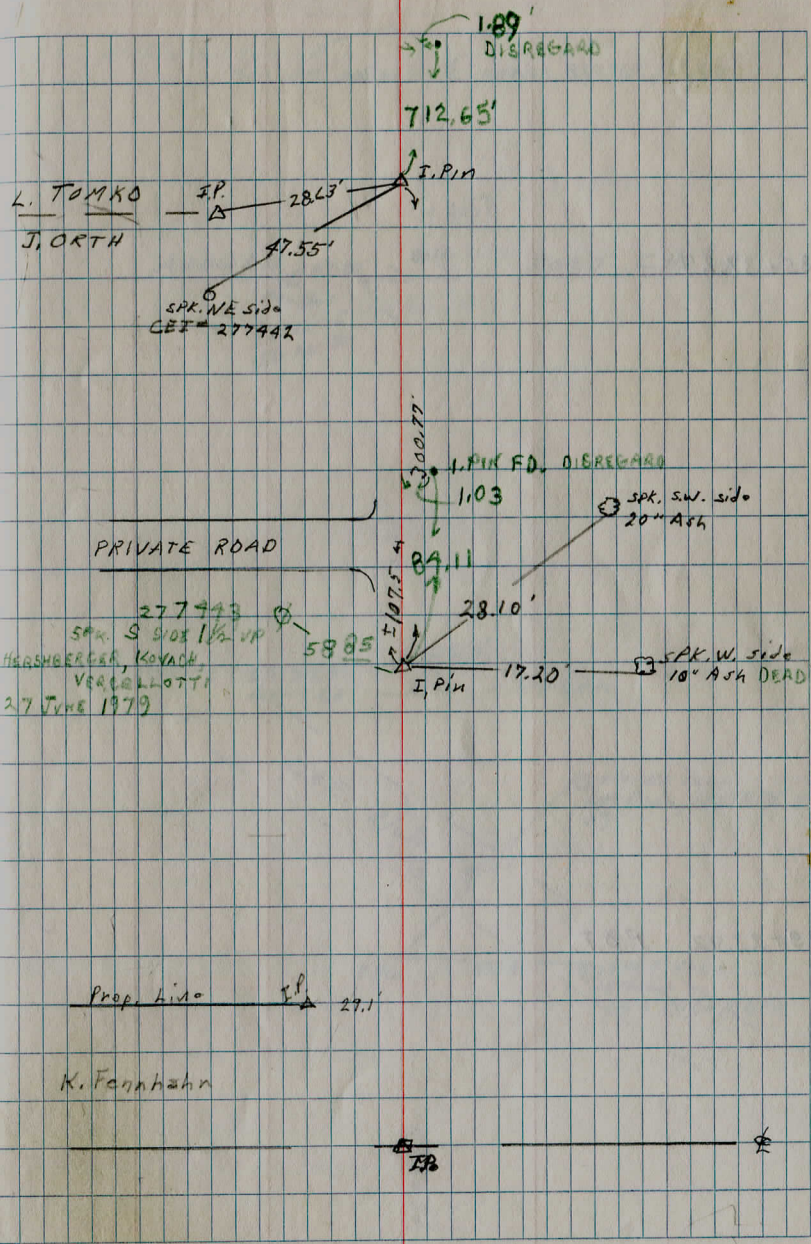 1.89'
DISREGARD
712.65'
I. Pin
L. TOMKO I.P. 28.63'
J. ORTH
47.55'
SPK. NE side
CEI# 277442
300.77'
I. PIN FD. DISREGARD
1.03
SPK. S.W. side
20" Ash
PRIVATE ROAD
84.11
±107.5
28.10'
277443
SPK. S SIDE 1½ UP
58 85
HERSHBERGER, KOVACH,
VERCELLOTTI
27 JUNE 1979
I. Pin
17.20'
SPK. W. side
10" Ash DEAD
Prop. Line I.P. 29.1'
K. Fennhahn
℄